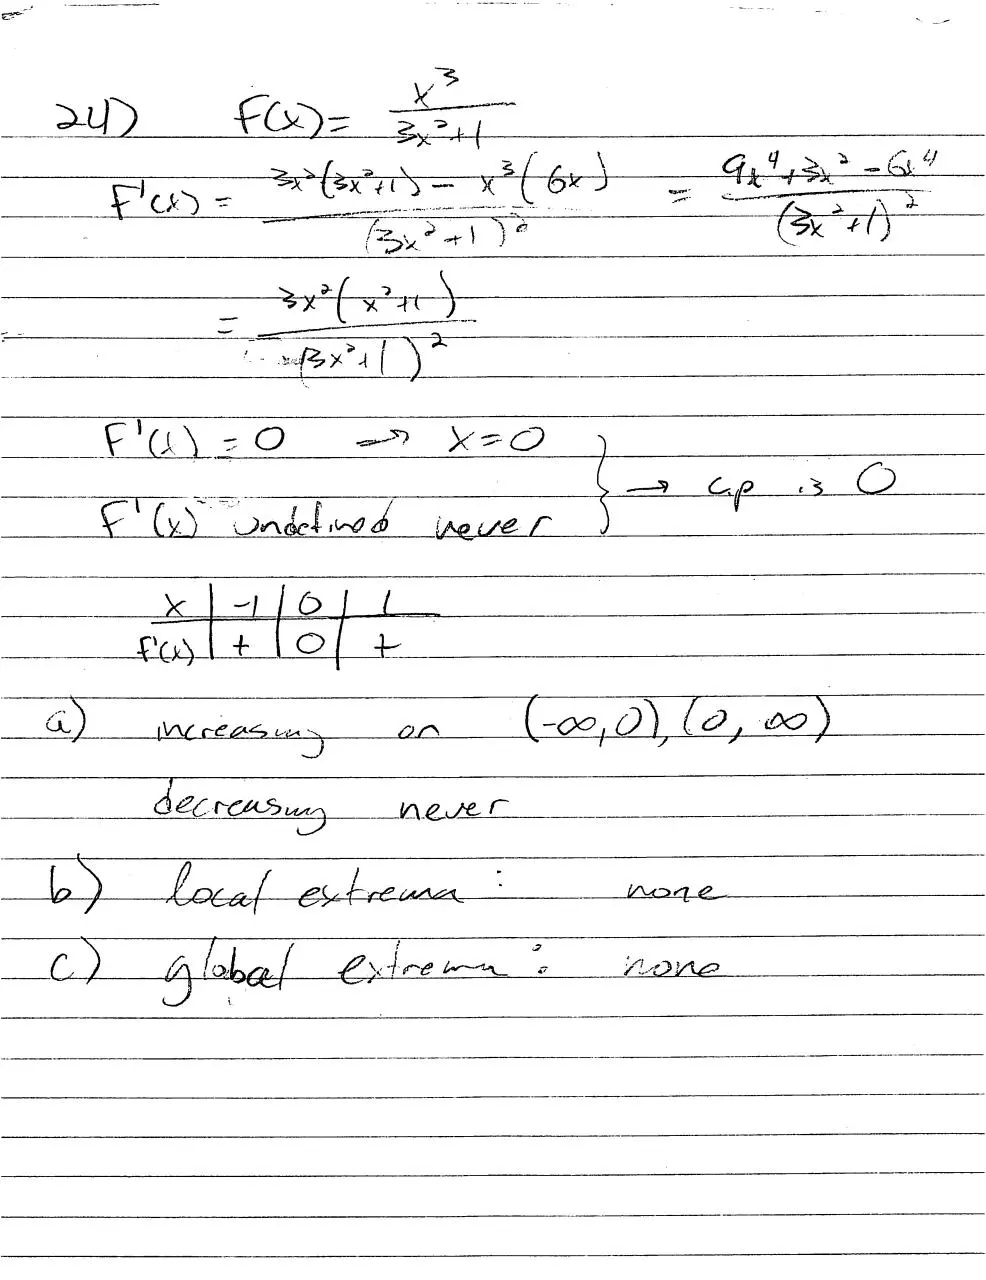 24) F(x) = x³ / (3x²+1)
F'(x) = (3x²(3x²+1) - x³(6x)) / (3x²+1)² = (9x⁴+3x²-6x⁴) / (3x²+1)²
= 3x²(x²+1) / (3x²+1)²
F'(x) = 0 → x=0
} → c.p is 0
F'(x) undefined never
x | -1 | 0 | 1
f'(x) | + | 0 | +
a) increasing on (-∞,0), (0, ∞)
decreasing never
b) local extrema : none
c) global extrema : none